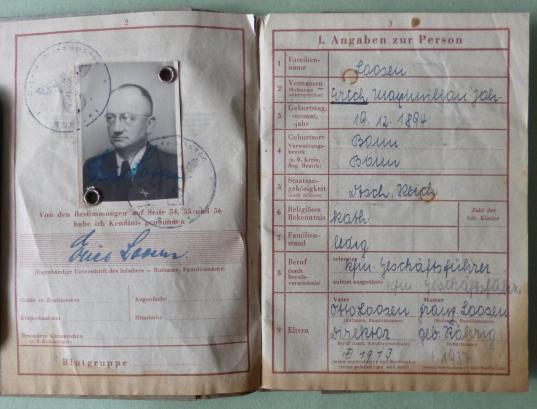 2
Von den Bestimmungen auf Seite 54, 55 und 56
habe ich Kenntnis genommen
Erich Loosen
(Eigenhändige Unterschrift des Inhabers — Rufname, Familienname)
Größe in Zentimetern
Augenfarbe
Haarfarbe
Besondere Kennzeichen
(z. B. Brillenträger)
Blutgruppe
3
I. Angaben zur Person
1 Familien-
name
Loosen
2 Vornamen
(Rufname
unterstreichen)
Erich Maximilian Joh.
3 Geburtstag,
-monat,
-jahr
19. 12. 1894
4 Geburtsort
Verwaltungs-
bezirk
(z. B. Kreis,
Reg. Bezirk)
Bonn
Bonn
5 Staatsan-
gehörigkeit
Dtsch. Reich
6 Religiöses
Bekenntnis
kath.
Zahl der
leb. Kinder
7 Familien-
stand
ledig
8 Beruf
(nach
Berufs-
verzeichnis)
erlernter
kfm. Geschäftsführer
zuletzt ausgeübter
kfm. Geschäftsführer
9 Eltern
Vater
Mutter
Otto Loosen
Loosen
(Rufname, Familienname)
Direktor
geb.
Beruf (nach Berufsverzeichnis)
1913